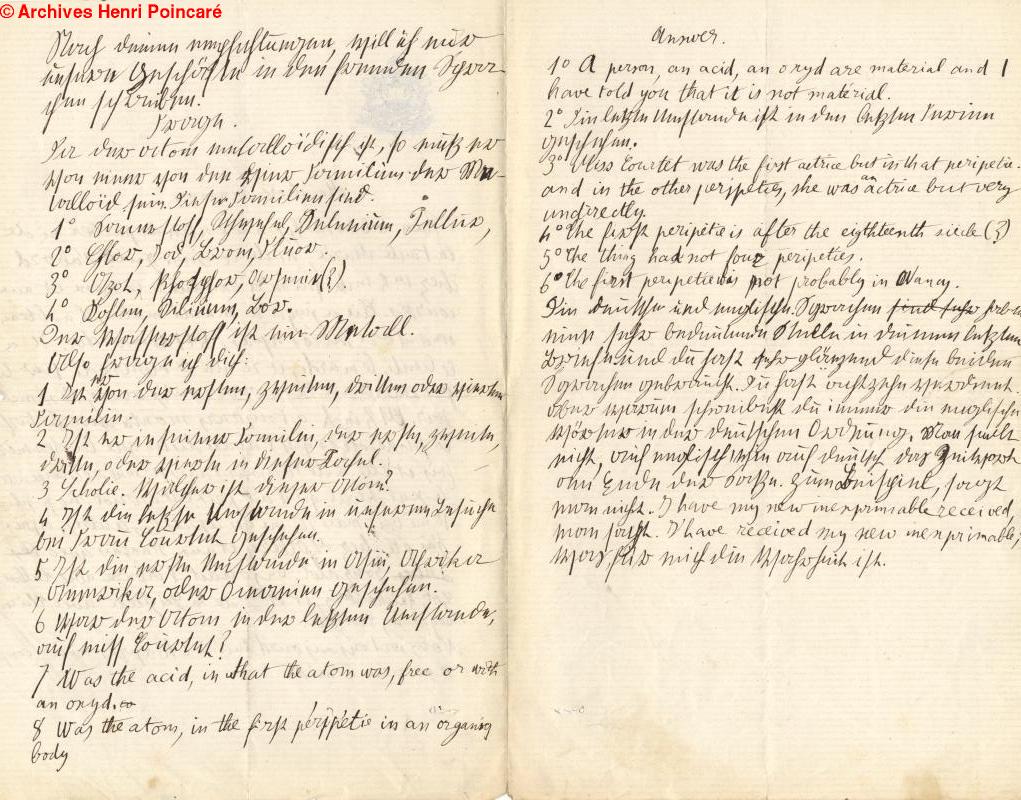 © Archives Henri Poincaré
Nach deinen
unsere Geschäfte in den fremden Spra-
chen schreiben.
Frage.
Ist der Atom metalloïdisch ist, so muß er
von einer von den Familien der Me-
talloid sein. Diese Familien sind.
1° Sauerstoff, Schwefel, Selenium, Tellur,
2° Chlor, Iod, Brom, Fluor.
3° Azot, Phosphor, Arsenic(?).
4° Kohlen, Silicium, Bor.
Der Wasserstoff ist ein Metall.
Also frage ich dich:
1 Ist er von der ersten, zweiten, dritten oder vierten
Familie.
2 Ist er in seiner Familie, der erste, zweite,
dritte, oder vierte in dieser Tafel.
3 Scholie. Welcher ist dieser Atom?
4 Ist die letzte Umstande in unserem Besuche
bei Frau Courtet geschehen.
5 Ist die erste Umstande in Asia, Afrika
, Amerika, oder Oceanien geschehen.
6 War der Atom in der letzten Umstande,
auf miss Courtet?
7 Was the acid, in that the atom was, free or with
an oxyd.
8 Was the atom, in the first péripétie in an organic
body
Answer.
1° A person, an acid, an oxyd are material and I
have told you that it is not material.
2° Die letzte Umstande ist in den letzten Ferien
geschehen.
3° Miss Courtet was the first actrice but in that peripetie
and in the other peripeties, she was an actrice but very
undirectly.
4° The first peripetie is after the eighteenth siecle (?)
5° The thing had not four peripeties.
6° The first peripetie is not probably in Nancy.
Die deutsche und englische Sprachen sind sehr haben
eine sehr bedeutende Stelle in deinem letzten
Briefe und du hast sehr glänzend diese beiden
Sprachen gebraucht. Du hast achtzehn verdient.
Aber warum schreibest du immer die englische
Wörter in der deutschen Ordnung. Man stellt
nicht, auf englisch wie auf deutsch das Zeitwort
am Ende der Satze. Zum Beispiel, sagt
man nicht. I have my new inexprimable received,
man sagt. I have received my new inexprimable,
was für mich die Wahrheit ist.